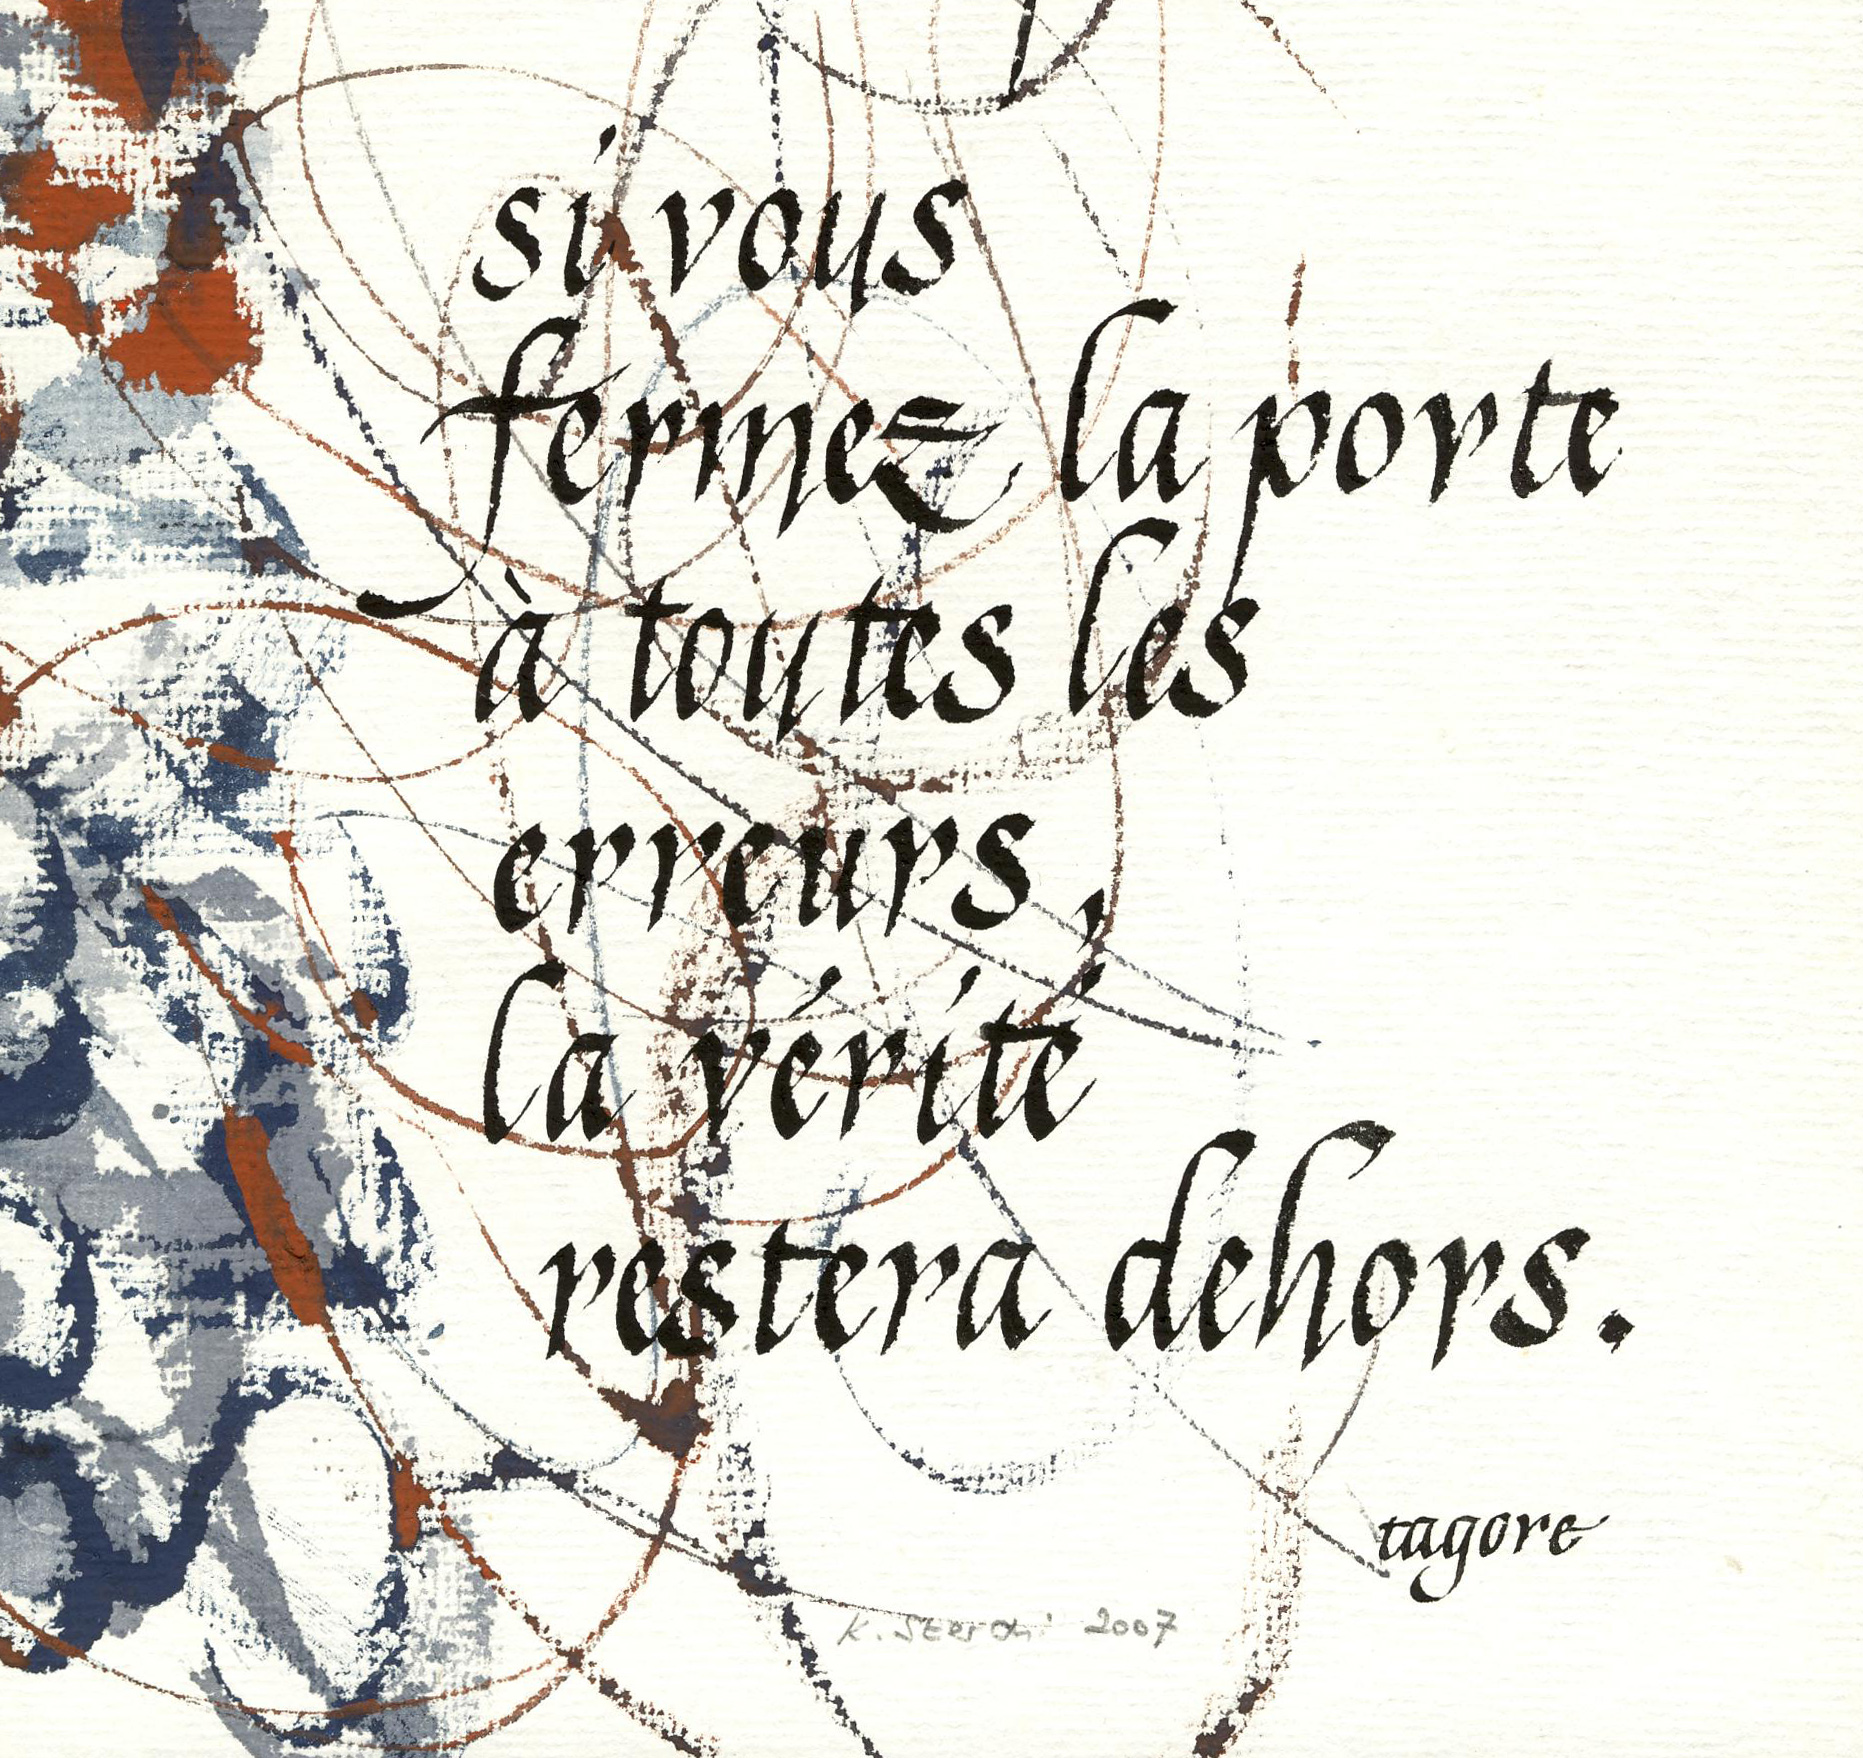 si vous
fermez la porte
à toutes les
erreurs,
la vérité
restera dehors.
tagore
K. 2007